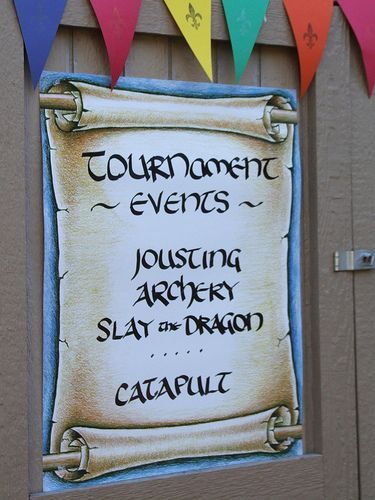 TOURNAMENT
~ EVENTS ~
JOUSTING
ARCHERY
SLAY the DRAGON
. . . . .
CATAPULT